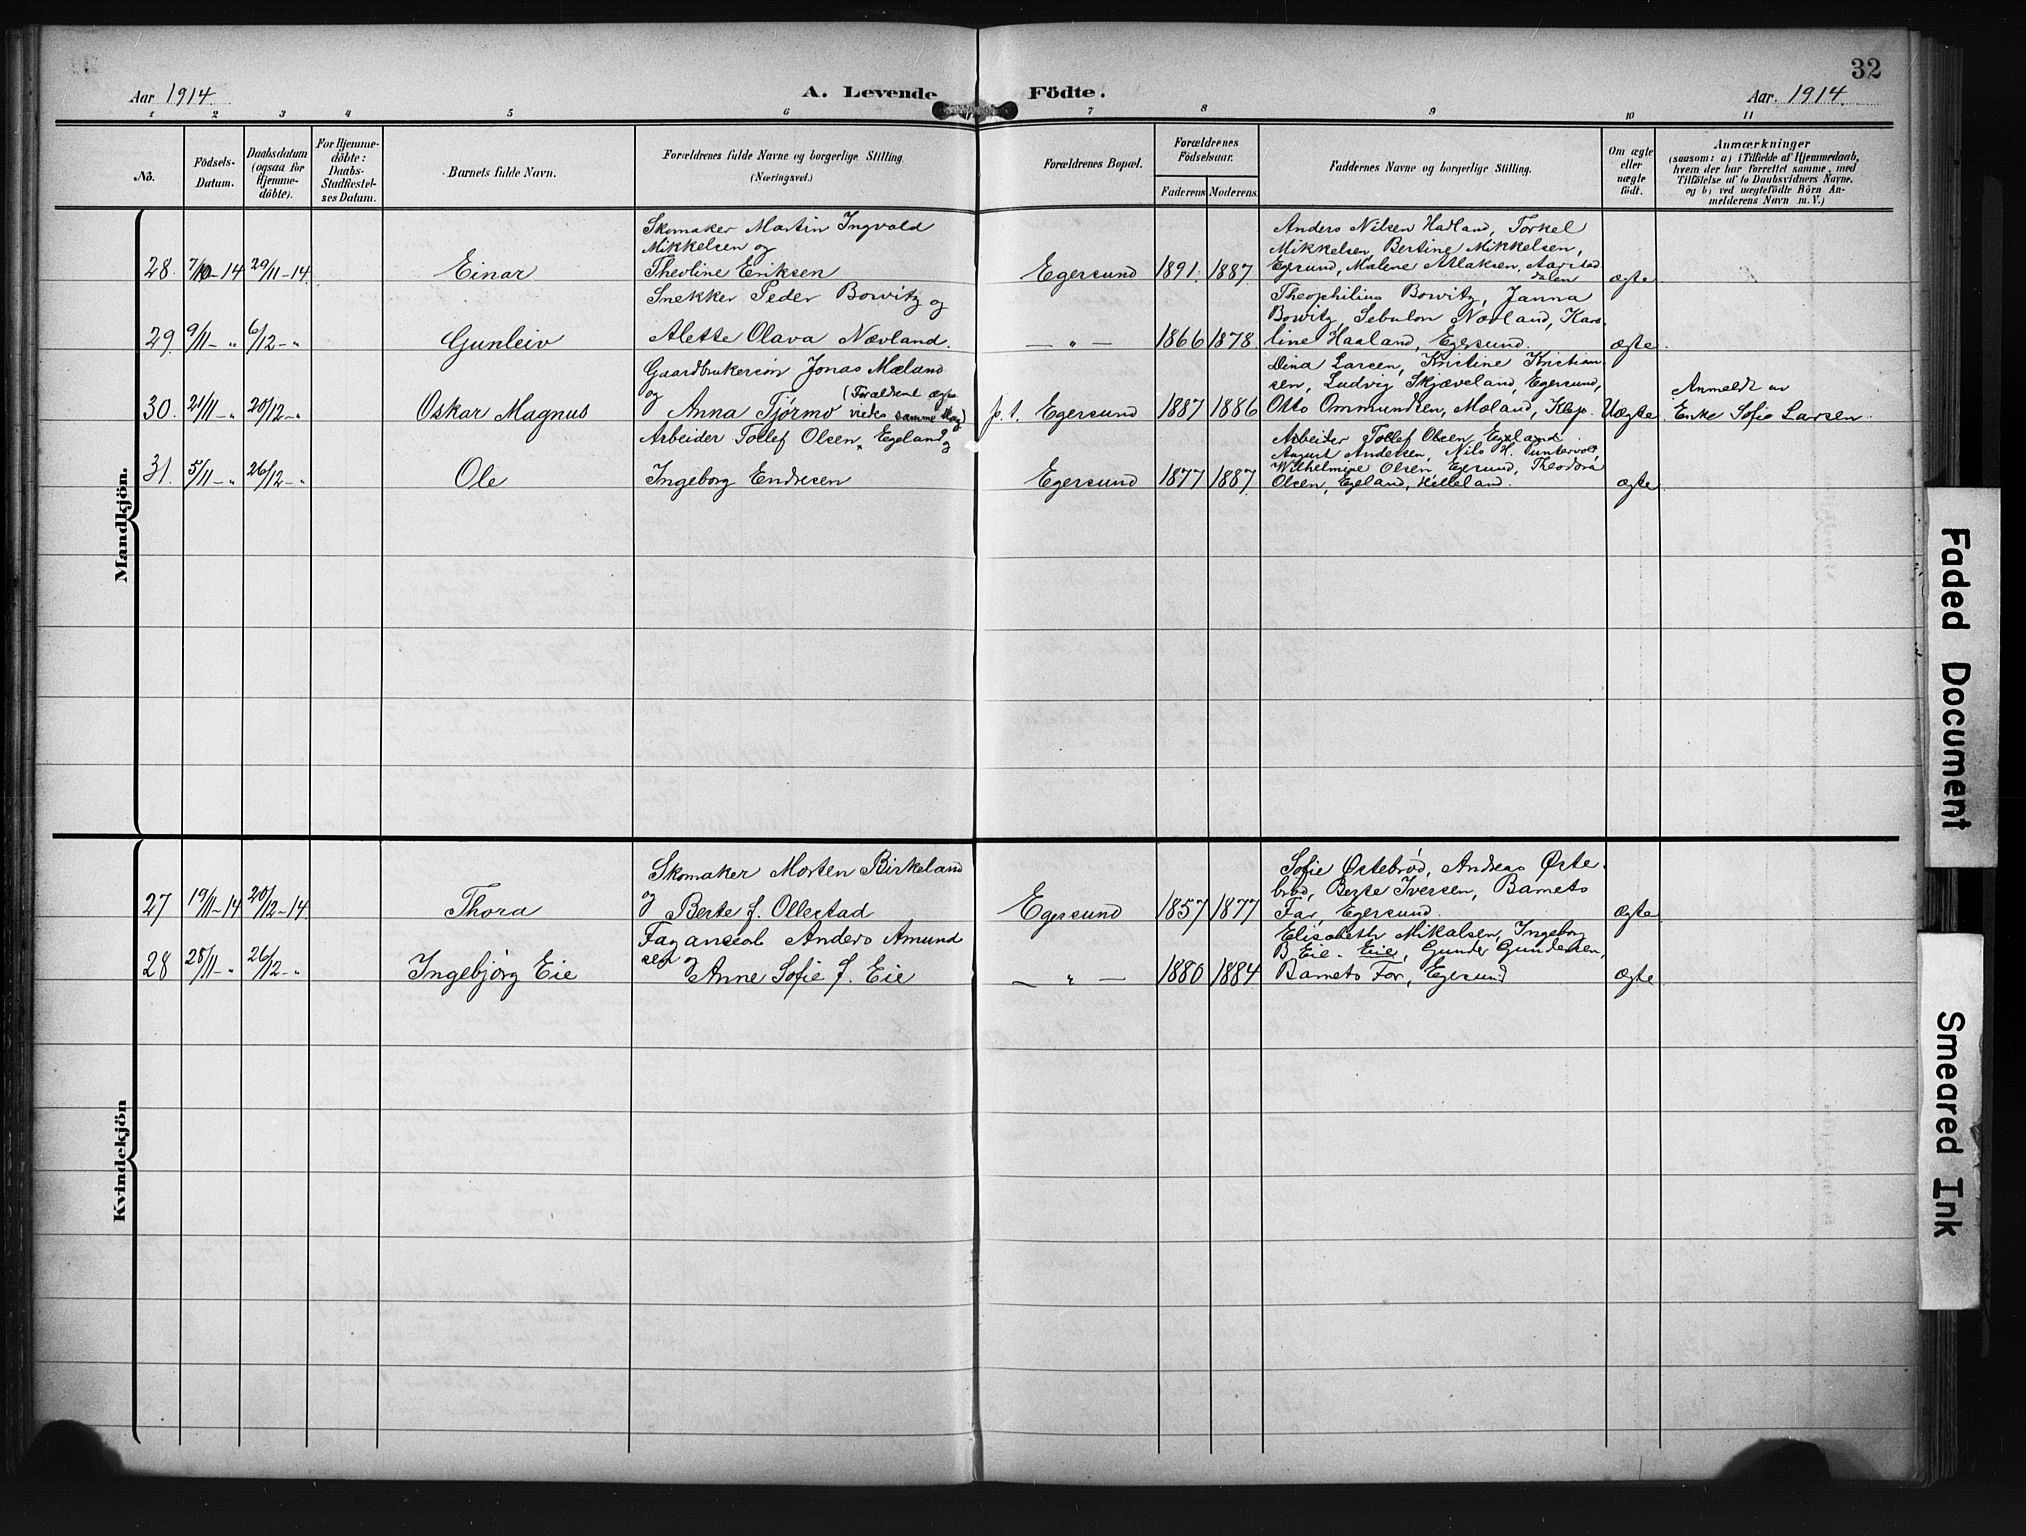 32
Aar 1914.
A. Levende Födte.
Aar. 1914.
1 2 3 4 5 6 7 8 9 10 11
No.
Födsels-
Datum.
Daabsdatum
(ogsaa for
Hjemme-
döbte).
For Hjemme-
döbte:
Daabs-
Stadfæstel-
ses Datum.
Barnets fulde Navn.
Forældrenes fulde Navne og borgerlige Stilling.
(Næringsvei.)
Forældrenes Bopæl.
Forældrenes
Födselsaar.
Faderens Moderens.
Faddernes Navne og borgerlige Stilling.
Om ægte
eller
uægte
födt.
Anmærkninger
(saasom: a) i Tilfælde af Hjemmedaab,
hvem der har forrettet samme, med
Tilföielse af to Daabsvidners Navne.
og b) ved uægtefödte Börn An-
melderens Navn m. V.)
Mandkjön.
28. 7/10-14 29/11-14. Einar
Skomaker Martin Ingvald
Mikkelsen og
Theoline Eriksen
Egersund 1891. 1887.
Anders Nilsen Hadland, Torkel
Mikkelsen, Bertine Mikkelsen,
Egersund, Malene Aslaksen, Aarstad
dalen
ægte
29. 9/11-" 6/12-" Gunleiv
Snekker Peder Bowitz og
Alette Olava Nævland.
— " — 1866 1878.
Theophilius Bowitz, Janna
Bowitz, Sebulon Nævland, Karo-
line Haaland, Egersund.
ægte.
30. 21/11-" 20/12-" Oskar Magnus
Gaardbrukersøn Jonas Mæland
og Anna Tjørmo (Forældrene ægte
viedes samme dag)
p. t. Egersund 1887 1886
Dina Larsen, Kristine Kristian-
sen, Ludvig Skjæveland, Egersund,
Otto Ommundsen, Mæland, Klep.
Uægte.
Anmeldt av
Enke Sofie Larsen.
31. 5/11-" 26/12-" Ole
Arbeider Tollef Olsen, Egeland og
Ingeborg Endresen
Egersund 1877 1887.
Arbeider Tollef Olsen Egeland
August Andersen, Nils H. Puntervold,
Wilhelmine Olsen, Egersund, Theodora
Olsen, Egeland, Helleland.
ægte.
Kvindekjön
27 19/11-14 20/12-14 Thora
Skomaker Morten Birkeland
og Berte f. Ollestad
Egersund 1857 1877
Sofie Østebrød, Andreas Øste-
brød, Berte Iversen, Barnets
Far, Egersund.
ægte
28 28/11-" 26/12-" Ingebjørg Eie
Anders Amund
sen og Anne Sofie f. Eie
— " — 1880 1884
Elisabeth Mikalsen, Ingeborg
B Eie. Eie, Gunder Gundersen,
Barnets Far, Egersund
ægte
Faded Document
Smeared Ink